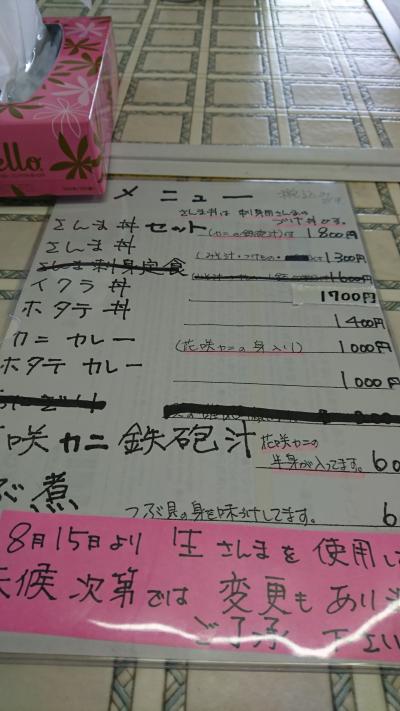 ello
メニュー
さんま丼は 刺身用さんまの
づけ丼です。
さんま丼 セット (カニの鉄砲汁)付 1800円
さんま丼 (みそ汁・つけもの・ 1300円
さんま刺身定食 1600円
イクラ丼 1700円
ホタテ丼 1400円
カニ カレー (花咲カニの身入り) 1000円
ホタテ カレー 1000円
咲カニ 鉄砲汁 花咲カニの
半身が入ってます。 60
ぶ煮 つぶ貝の身を味付けしてます。 6
8月15日より 生さんまを 使用し
天候 次第では 変更も あり
ご了承 下さい